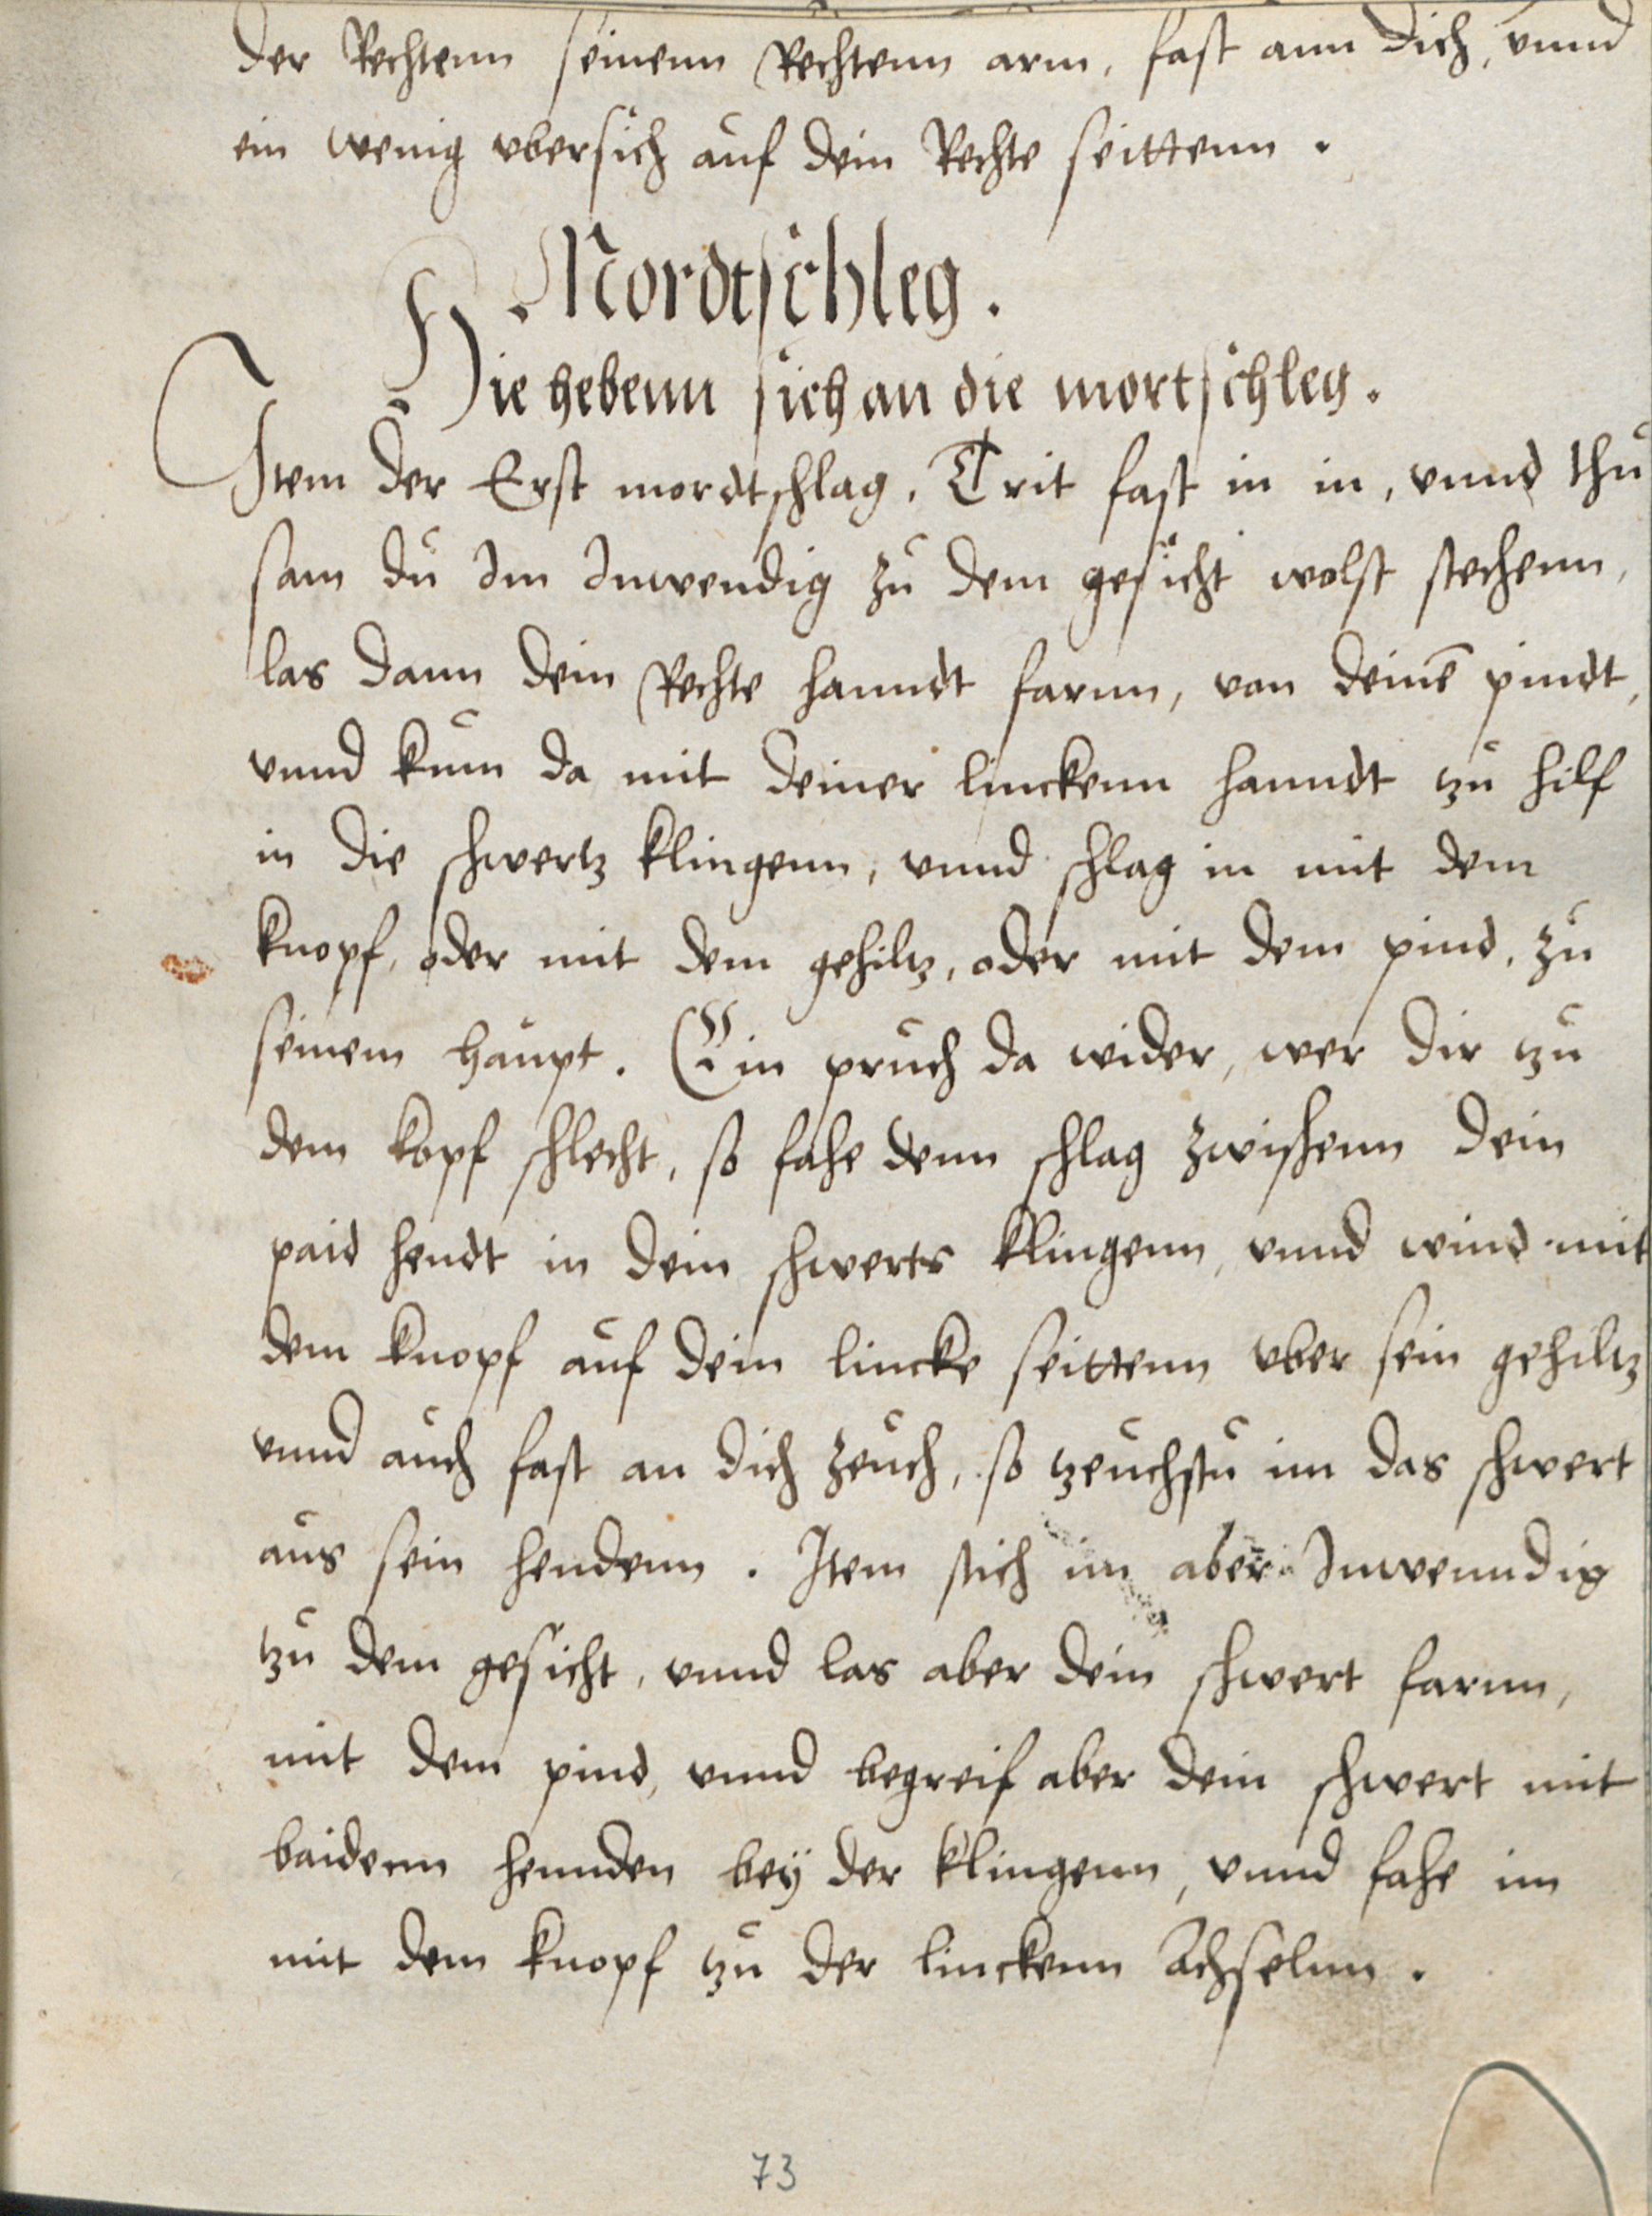 der Rechtenn seinenn Rechtenn arm, fast ann dich, vnnd
ein wenig vbersich auf dein Rechte seittenn.
Mordtschleg.
Hie hebenn sich an die mortschleg.
Item der Erst mordtschlag. Trit fast in in, vnnd thu
sam du Im Inwendig zu dem gesicht wolst stechenn,
las dann dein Rechte hanndt farnn, von deinē pindt,
vnnd kum da mit deiner linckenn hanndt tzu hilf
in die schwertz klingenn, vnnd schlag in mit dem
knopf, oder mit dem gehiltz, oder mit dem pind, zu
seinem haupt. Ein pruch da wider, wer dir tzu
dem kopf schlecht, so fahe denn schlag zwischenn dein
paid hendt in dein schwerts klingenn, vnnd wind mit
dem knopf auf dein lincke seittenn vber sein gehiltz
vnnd auch fast an dich zeuch, so tzeuchstu im das schwert
aus sein hendenn. Item stich im aber Inwenndig
tzu dem gesicht, vnnd las aber dein schwert farnn,
mit dem pind, vnnd begreif aber dein schwert mit
baidenn hennden bey der klingenn, vnnd fahe im
mit dem knopf tzu der linckenn Achselnn.
73